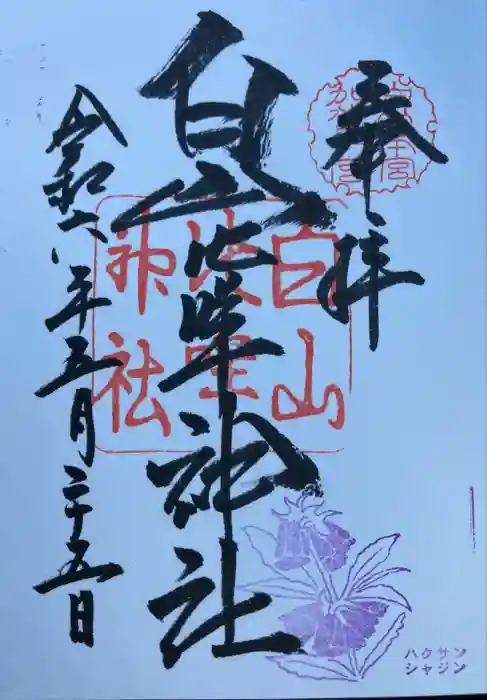 奉拝
白山比咩神社
令和六年五月二十五日
白山
比咩
神社
ハクサン
シャジン